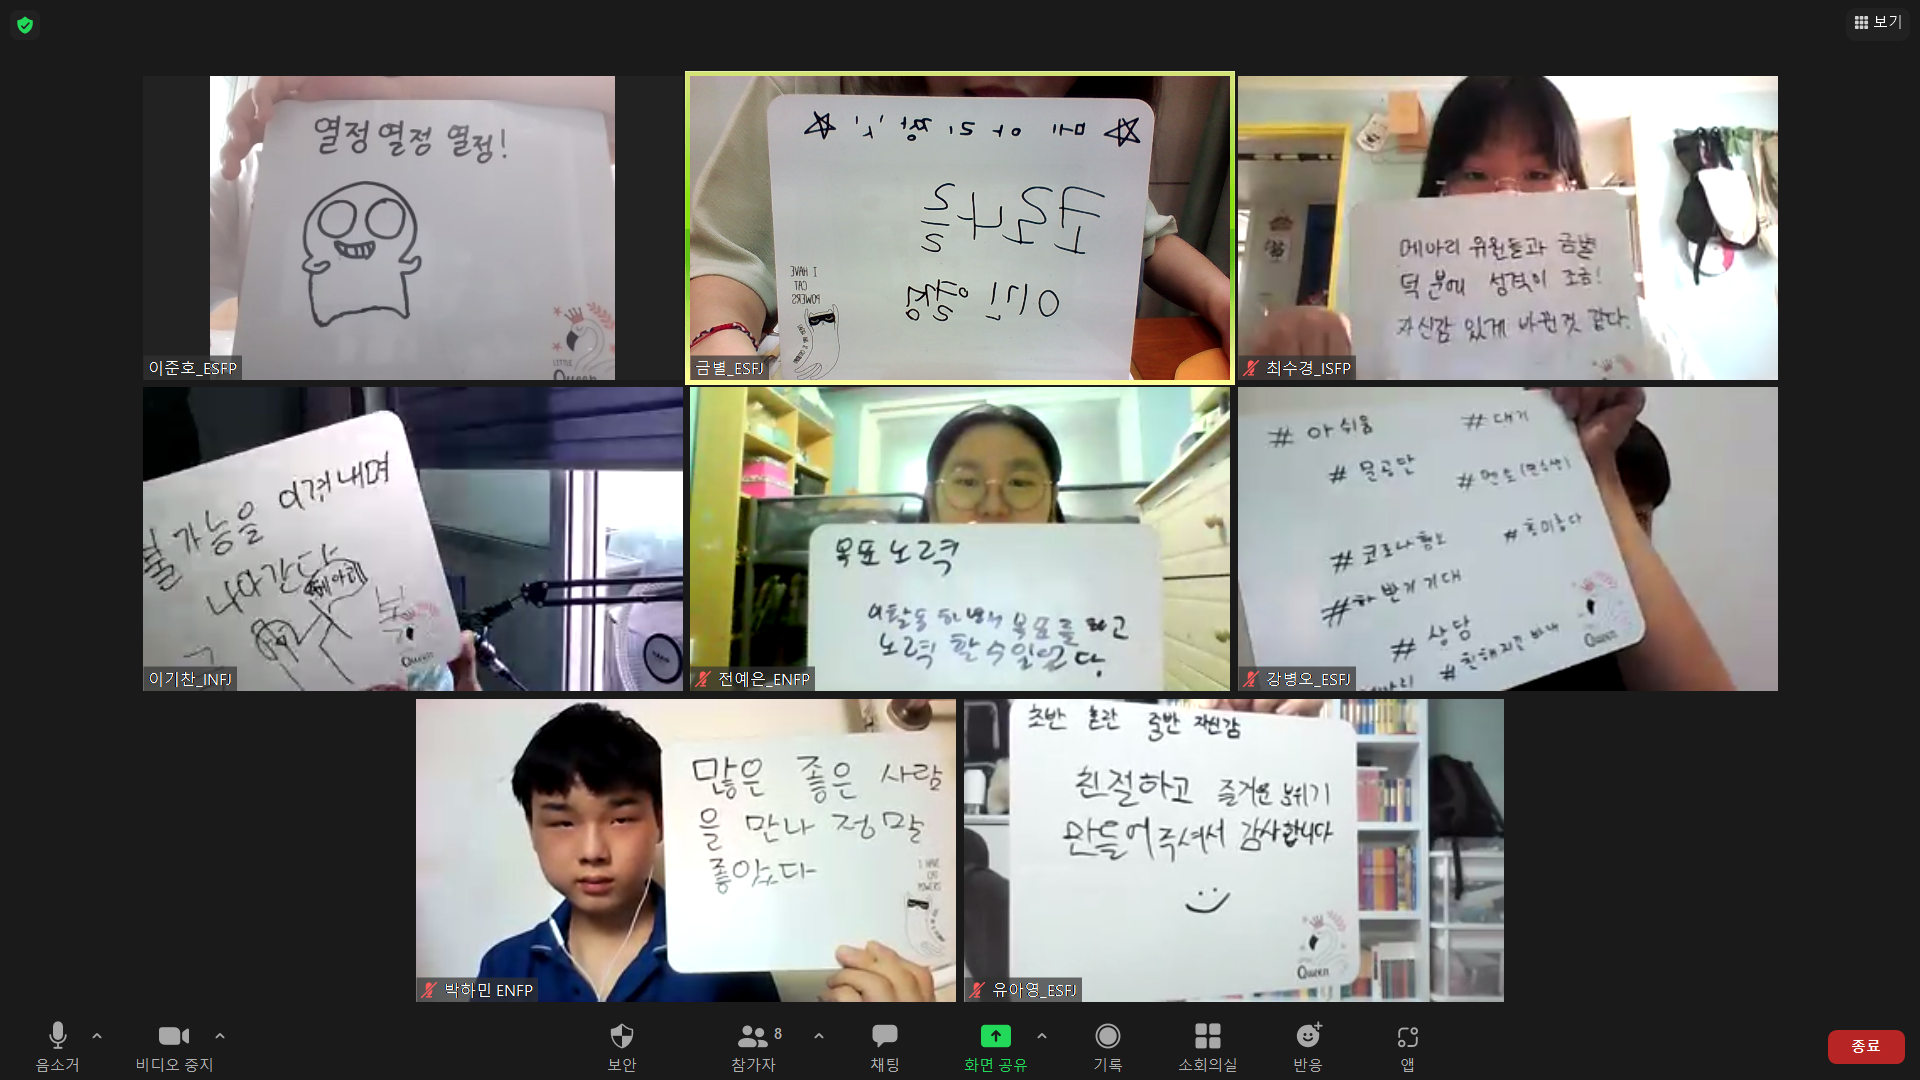 보기
열정 열정 열정!
LITTLE
Queen
이준호_ESFP
☆ 메아리 활 시 ☆
코로나를
이긴 열정
I HAVE
CAT
POWERS
금별_ESFJ
메아리 위원들과 금별
덕분에 성격이 조금!
자신감 있게 바뀐것 같다.
최수경_ISFP
불가능을 이겨내며
나아간다
메아리
Queen
이기찬_INFJ
목표 노력
이활동 하면서 목표를 하고
노력 할 수 있었다.
전예은_ENFP
# 아쉬움
# 대기
# 물공만
# 멘토(연수생)
# 코로나 행보
# 흥미롭다
# 하반기 기대
# 상담
Queen
강병오_ESFJ
많은 좋은 사람
을 만나 정말
좋았다
I HAVE
박하민 ENFP
초반 혼란 중반 자신감
친절하고 즐거운 분위기
만들어주셔서 감사합니다
Queen
유아영_ESFJ
음소거
비디오 중지
보안
8
참가자
채팅
화면 공유
기록
소회의실
반응
앱
종료